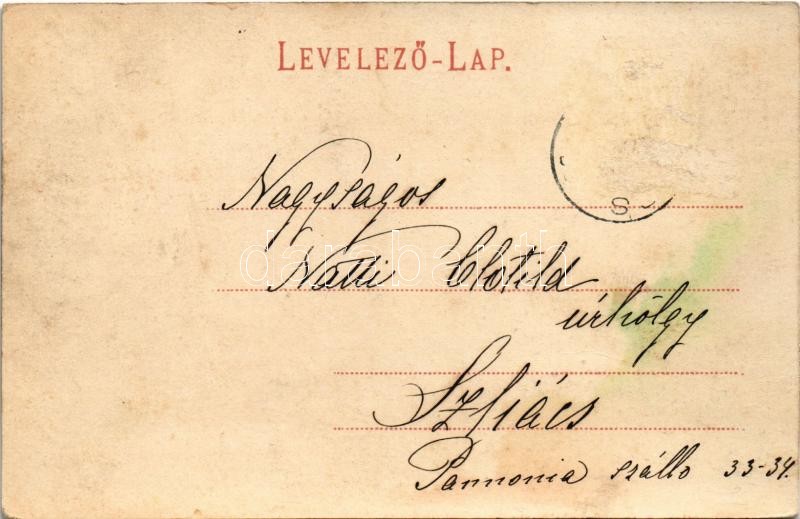 LEVELEZŐ-LAP.
S
Nagyságos
darabanth
Natti Clotild
úrhölgy
Szliács
Pannonia szálló 33-34.